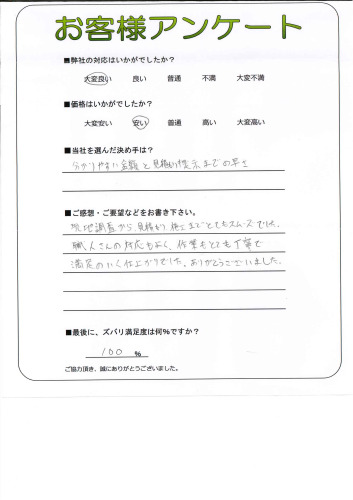 お客様アンケート
■弊社の対応はいかがでしたか？
大変良い 良い 普通 不満 大変不満
■価格はいかがでしたか？
大変安い 安い 普通 高い 大変高い
■当社を選んだ決め手は？
分かりやすい金額と見積り提示までの早さ
■ご感想・ご要望などをお書き下さい。
現地調査から見積り施工までとてもスムーズでした。
職人さんの対応もよく、作業もとても丁寧で
満足のいく仕上がりでした。ありがとうございました。
■最後に、ズバリ満足度は何％ですか？
100 ％
ご協力頂き、誠にありがとうございました。